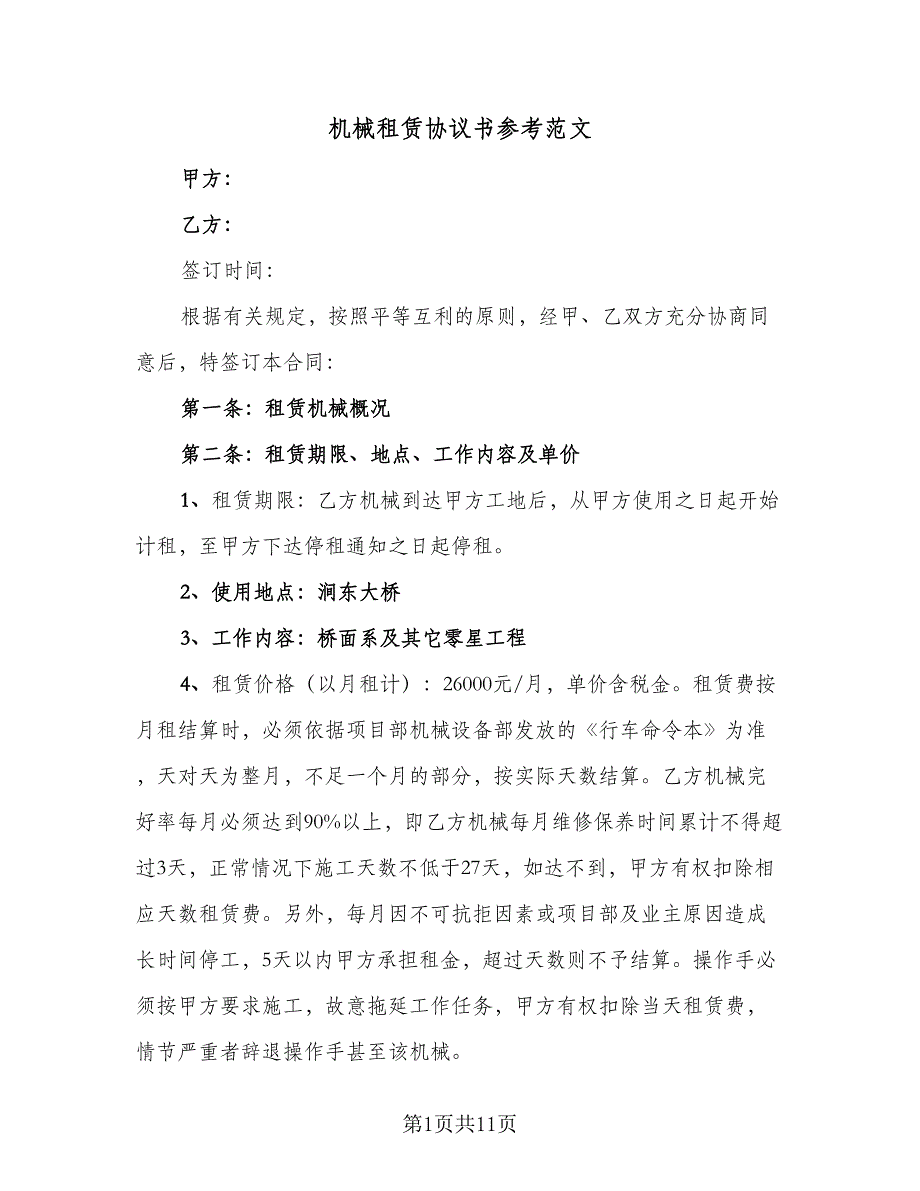 机械租赁协议书参考范文
甲方：
乙方：
签订时间：
根据有关规定，按照平等互利的原则，经甲、乙双方充分协商同
意后，特签订本合同：
第一条：租赁机械概况
第二条：租赁期限、地点、工作内容及单价
1、租赁期限：乙方机械到达甲方工地后，从甲方使用之日起开始
计租，至甲方下达停租通知之日起停租。
2、使用地点：涧东大桥
3、工作内容：桥面系及其它零星工程
4、租赁价格（以月租计）：26000元/月，单价含税金。租赁费按
月租结算时，必须依据项目部机械设备部发放的《行车命令本》为准
，天对天为整月，不足一个月的部分，按实际天数结算。乙方机械完
好率每月必须达到90%以上，即乙方机械每月维修保养时间累计不得超
过3天，正常情况下施工天数不低于27天，如达不到，甲方有权扣除相
应天数租赁费。另外，每月因不可抗拒因素或项目部及业主原因造成
长时间停工，5天以内甲方承担租金，超过天数则不予结算。操作手必
须按甲方要求施工，故意拖延工作任务，甲方有权扣除当天租赁费，
情节严重者辞退操作手甚至该机械。
第1页共11页